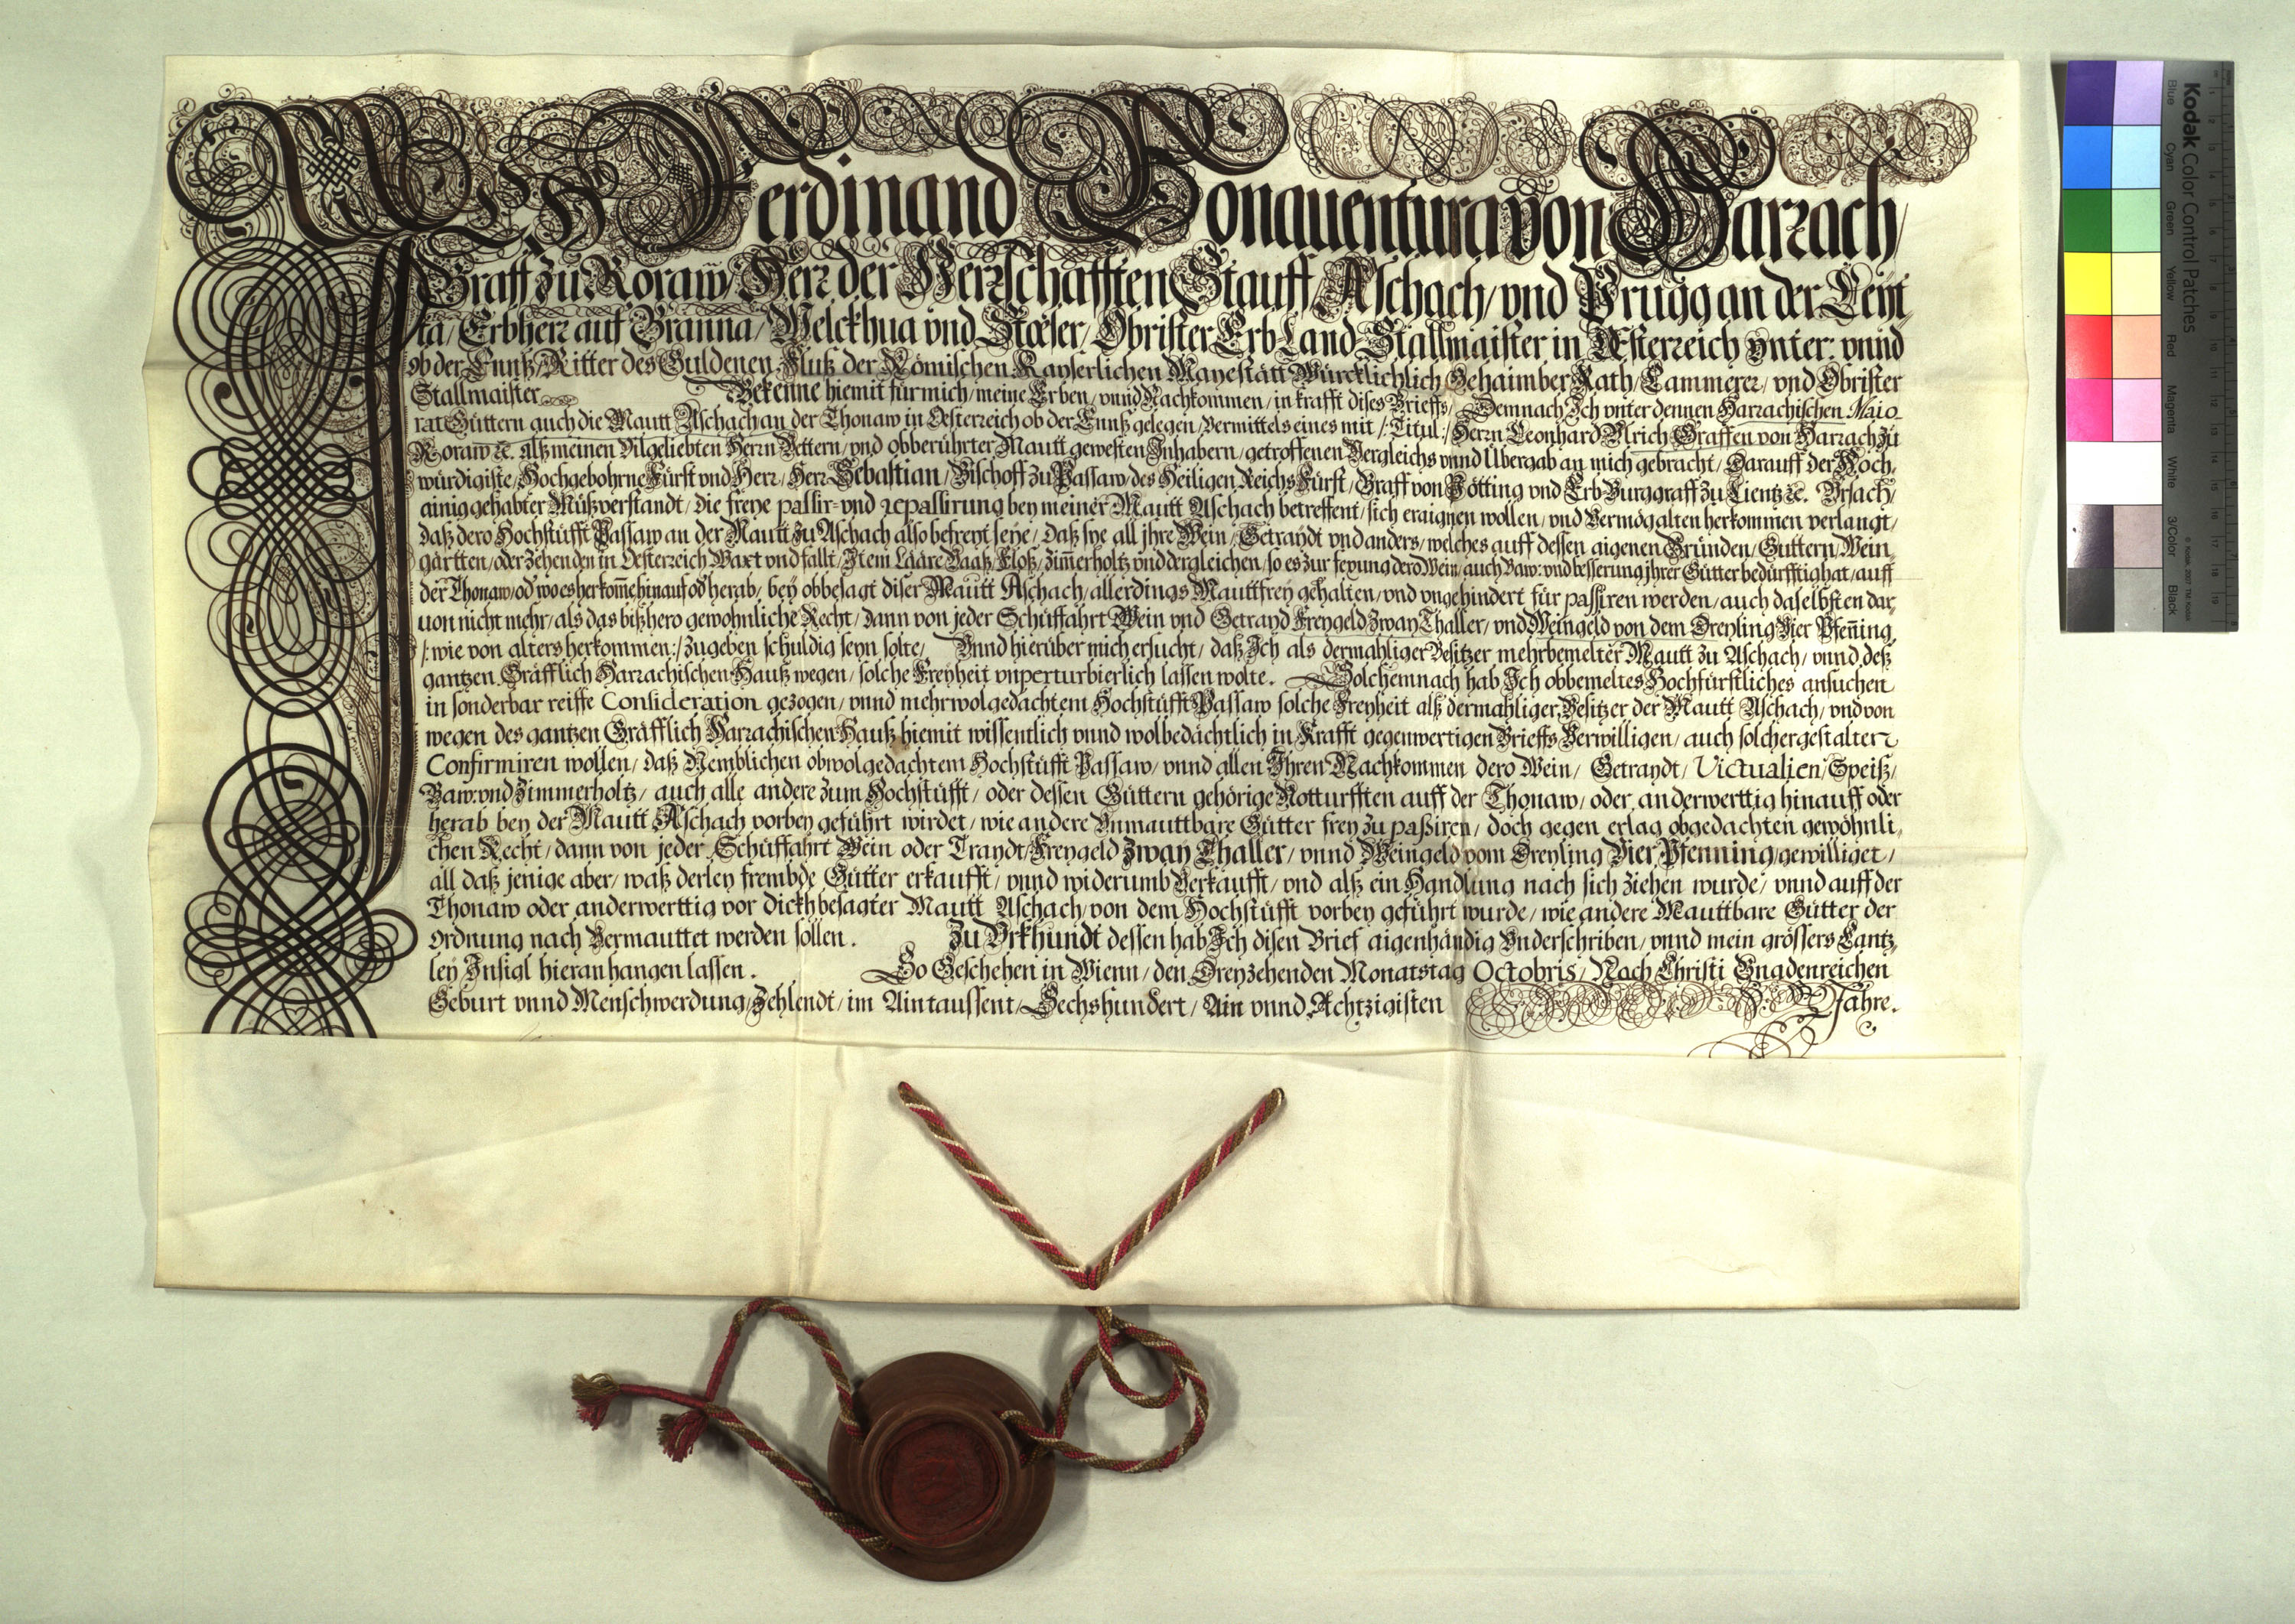 Ich Ferdinand Bonauentura von Harrach/
Graff zu Roraw/ Herr der Herrschafften Stauff/ Aschach/ vnd Prugg an der Leyt„
ta/ Erbherr auf Branna/ Welckhua vnd Stœser/ Obrister Erb-Land-Stallmaister in Œsterreich vnter: vnnd
ob der Ennß/ Ritter des Guldenen Fluß der Römischen Kayserlichen Mayestätt Würcklichlich Gehaimber Rath/ Cammerer/ vnd Obrister
Stallmaister Bekenne hiemit für mich/ meine Erben/ vnnd Nachkommen/ in krafft dises Brieffs/ Demnach Ich vnter dennen Harrachischen Maio„
rat Güttern auch die Mautt Aschach an der Thonaw in Oesterreich ob der Ennß gelegen/ vermittels eines mit /: Titul :/ Herrn Leonhard Vlrich Graffen von Harrach zu
Roraw &c. alß meinen Vilgeliebten Herrn Vettern/ vnd obberührter Mautt gewesten Inhabern/ getroffenen Vergleichs vnnd Übergab an mich gebracht/ Darauff der Hoch„
würdigiste/ Hochgebohrne Fürst vnd Herr/ Herr Sebastian/ Bischoff zu Passaw/ des Heiligen Reichs Fürst/ Graff von Pötting vnd Erb Burggraff zu Lientz &c. Vrsach/
ainig gehabter Müßverstandt/ die freye passir- vnd repassirung bey meiner Mautt Aschach betreffent/ sich eraignen wollen/ vnd Vermög alten herkommen verlangt/
daß dero Hochstüfft Passaw an der Mautt zu Aschach also befreyt seye/ daß sye all jhre Wein/ Getraydt vnd anders/ welches auff dessen aigenen Gründen/ Güttern/ Wein„
gärtten/ oder Zehenden in Oesterreich Waxt vnd fallt/ Item Lääre Vaaß/ Flöß/ Zimmerholtz vnd dergleichen/ so es zur fexung dero Wein/ auch Baw: vnd besserung jhrer Gütter bedürfftig hat/ auff
der Thonaw/ od wo es herkomme hinauf od herab/ bey obbesagt diser Mautt Aschach/ allerdings Mauttfrey gehalten/ vnd vngehindert für passiren werden/ auch daselbsten dar„
uon nicht mehr/ als das bißhero gewohnliche Recht/ dann von jeder Schüffahrt Wein vnd Getrayd Freygeld zway Thaller/ vnd Weingeld von dem Dreyling Vier Pfenning,
/: wie von alters herkommen :/ zugeben schuldig seyn solte/ Vnnd hierüber mich ersucht/ daß Ich als dermahliger Besitzer mehrbemelter Mautt zu Aschach/ vnnd deß
gantzen Gräfflich Harrachischen Hauß wegen/ solche Freyheit vnperturbierlich lassen wolte. Solchemnach hab Ich obbemeltes Hochfürstliches ansuchen
in sonderbar reiffe Consideration gezogen/ vnnd mehrwolgedachtem Hochstüfft Passaw solche Freyheit alß dermahliger Besitzer der Mautt Aschach/ vnd von
wegen des gantzen Gräfflich Harrachischen Hauß hiemit wissentlich vnnd wolbedächtlich in Krafft gegenwertigen Brieffs Verwilligen/ auch solchergestalter
Confirmiren wollen/ daß Nemblichen obwolgedachtem Hochstüfft Passaw/ vnnd allen Ihren Nachkommen dero Wein/ Getraydt/ Victualien/ Speiß/
Baw: vnd Zimmerholtz/ auch alle andere zum Hochstüfft/ oder dessen Güttern gehörige Notturfften auff der Thonaw/ oder anderwerttig hinauff oder
herab bey der Mautt Aschach vorbey geführt wirdet/ wie andere Vnmauttbare Gütter frey zu paßiren/ doch gegen erlag obgedachten gewöhnli„
chen Recht/ dann von jeder Schüffahrt Wein oder Traydt/ Freygeld Zway Thaller/ vnnd Weingeld vom Dreyling Vier Pfenning/ gewilliget/
all daß jenige aber/ waß derley frembde Gütter erkaufft/ vnnd widerumb Verkaufft/ vnd alß ein Handlung nach sich ziehen wurde/ vnnd auff der
Thonaw oder anderwerttig vor dickhbesagter Mautt Aschach/ von dem Hochstüfft vorbey geführt wurde/ wie andere Mauttbare Gütter der
Ordnung nach Vermauttet werden sollen. Zu Vrkhundt dessen hab Ich disen Brief aigenhändig Vnderschriben/ vnnd mein grössers Cantz„
ley Insigl hieran hangen lassen. So Geschehen in Wienn/ den Dreyzehenden Monatstag Octobris/ Nach Christi Gnadenreichen
Geburt vnnd Menschwerdung/ Zehlendt/ im Aintaussent/ Sechshundert/ Ain vnnd Achtzigisten Jahre.
Kodak Color Control Patches
Blue Cyan Green Yellow Red Magenta White 3/Color Black